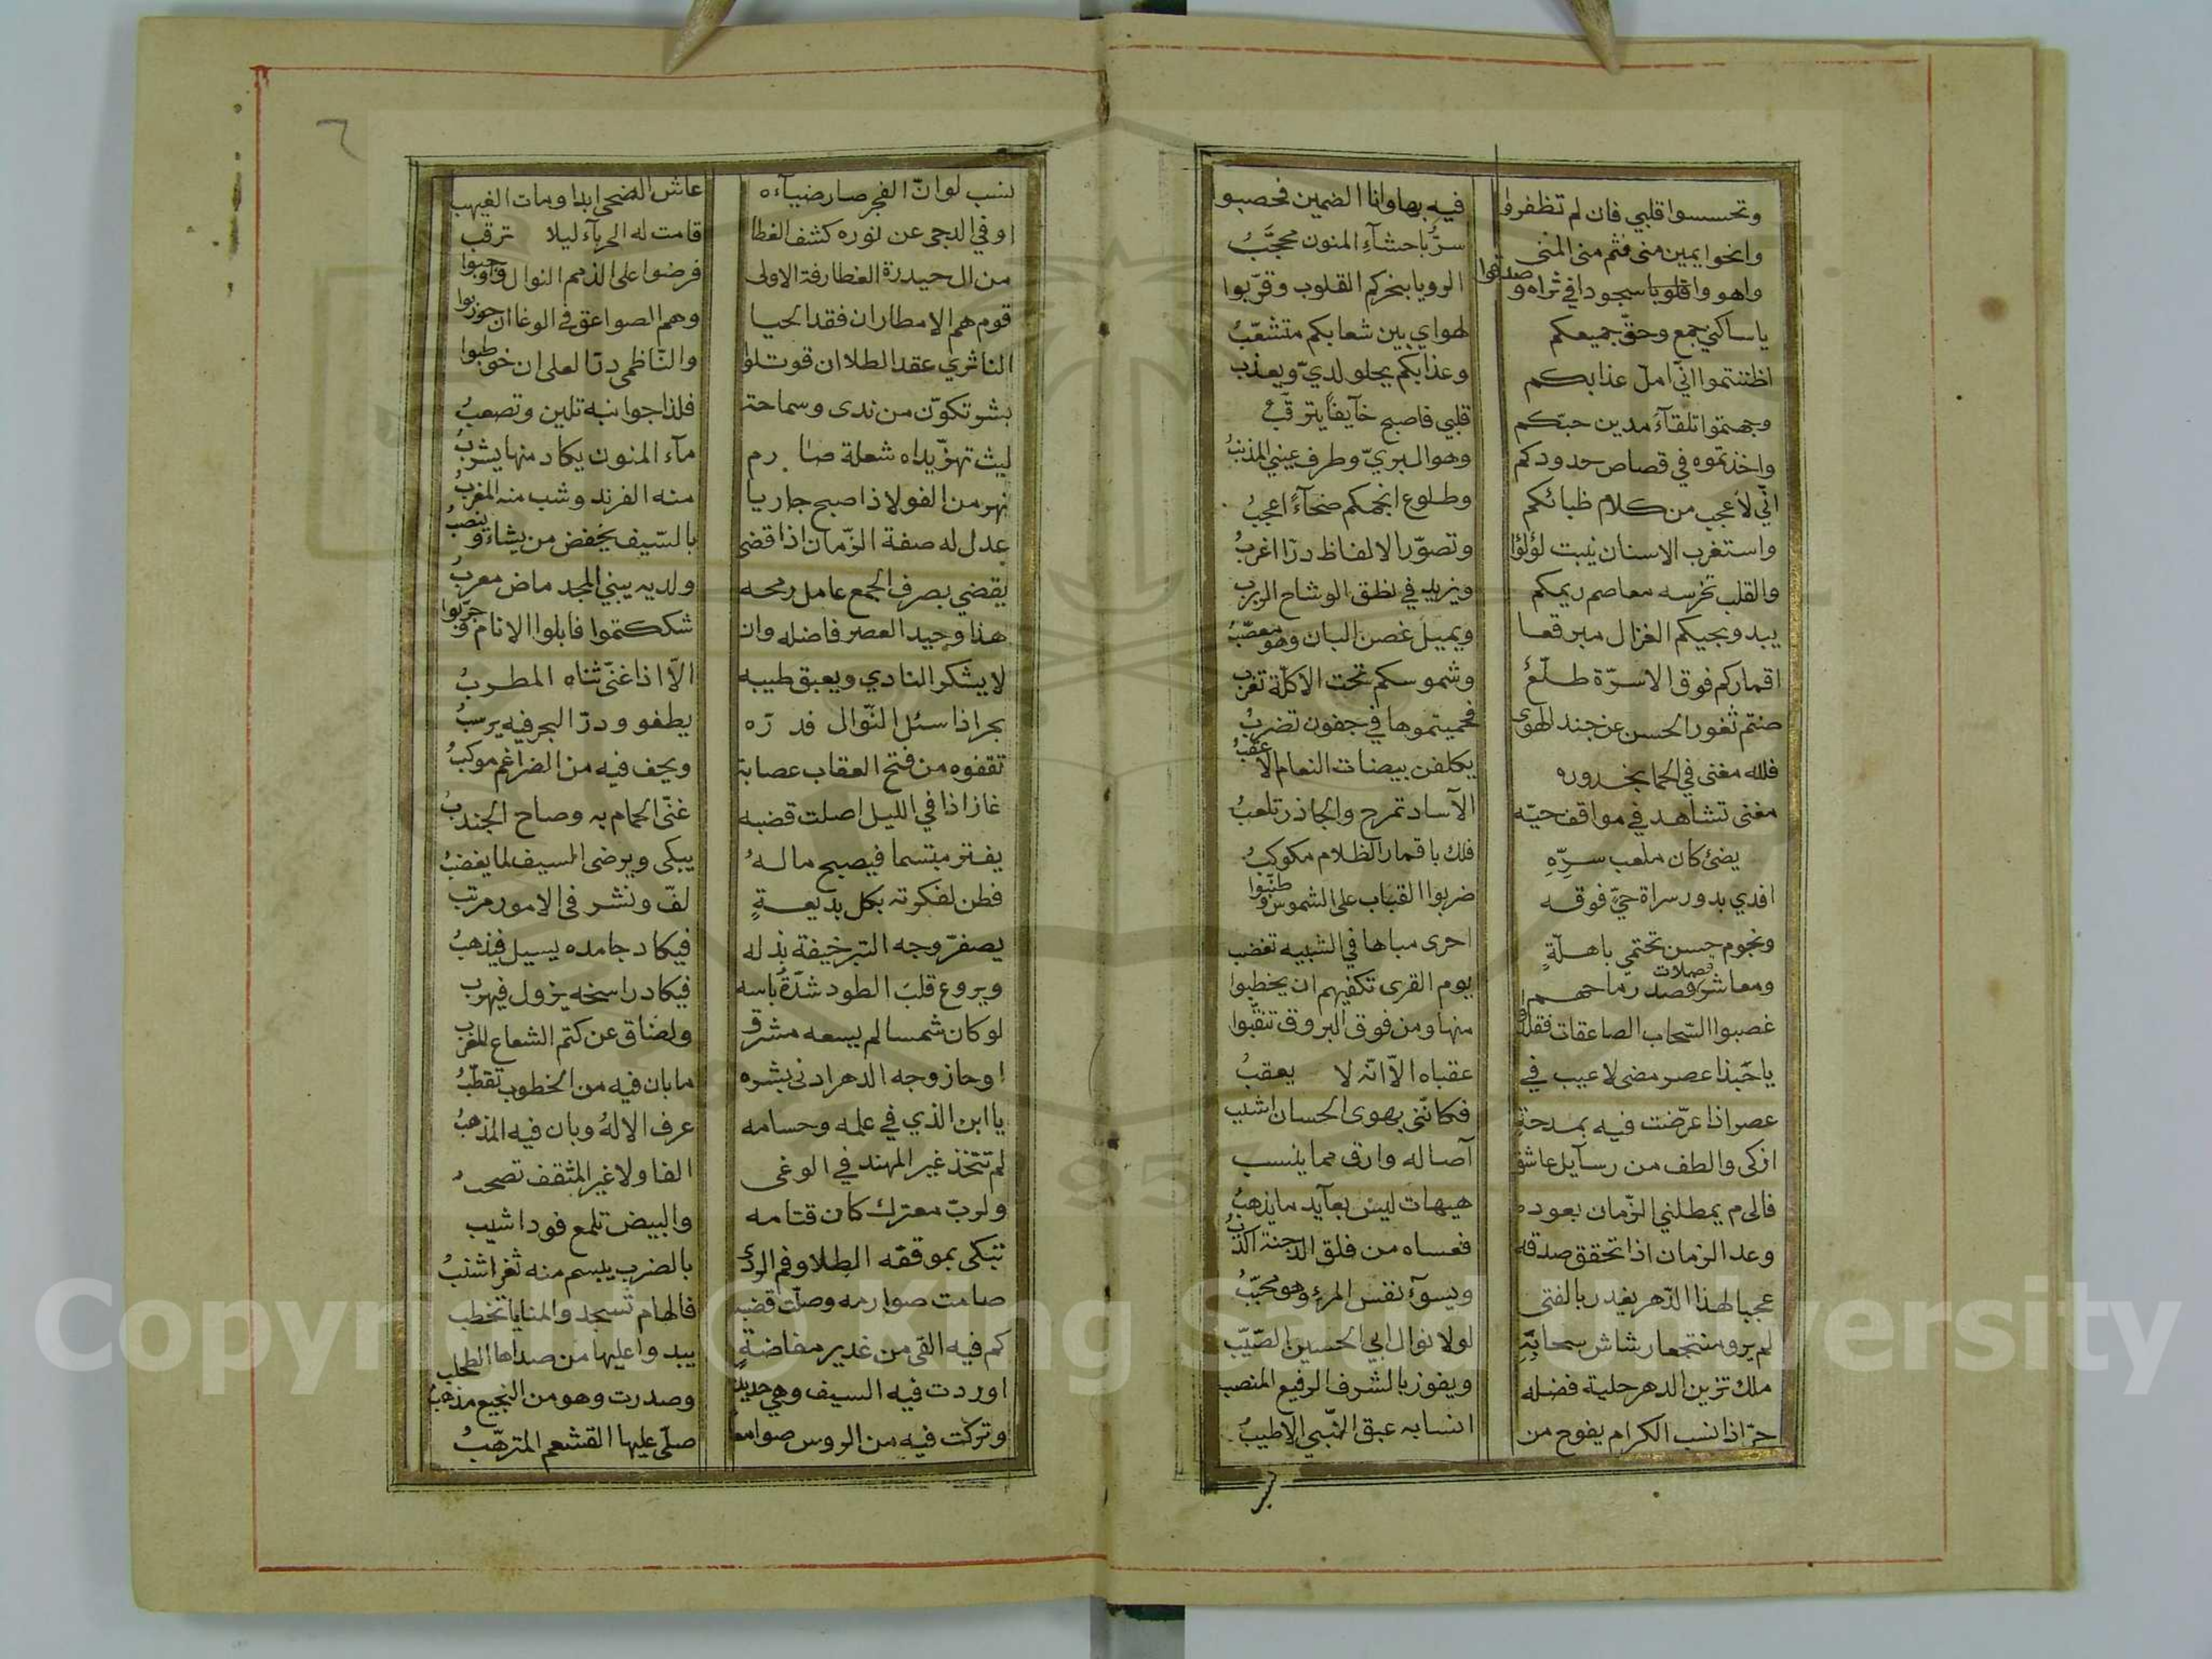 وتحسسوا قلبي فان لم تظفروا فيه بها وانا الضمين فحصبوا
وانحوا يمين منى فثم منى المنى سرٌّ باحشآء المنون محجَّبُ
واهووا قلوبا سجودا في ثراه وصدقوا الرويا بنحركم القلوب وقرّبوا
يا ساكني جمع وحقّ جميعكم لهواي بين شعابكم متشعّبُ
اظننتموا انّي امل عذابكم وعذابكم يحلو لديّ ويعذب
وجهتموا تلقآء مدين حبّكم قلبي فاصبح خآيفاً يترقّبُ
واخذتموه في قصاص حدودكم وهو البريّ وطرف عيني المذنبُ
انّي لاعجب من كلام ظبائكم وطلوع انجمكم ضحآءً اعجبُ
واستغرب الاسنان نيبت لؤلؤا وتصوّر الالفاظ درّا اغربُ
والقلب تخرسه معاصم ريمكم ويزيد في نطق الوشاح الربرب
يبدو بحيكم الغزال مبرقعا ويميل غصن البان وهو معصّبُ
اقماركم فوق الاسرّة طلّعٌ وشموسكم تحت الاكلّة تغرب
صنتم ثغور الحسن عن جند الهوى فحميتموها في جفون تضربُ
فلله مغنى في الحما بخدوره يكلفن بيضات النعام الا عقبُ
مغنى تشاهد في مواقف حيّه الآساد تمرح والجاذر تلعبُ
يضئ كان ملعب سربه فلك باقمار الظلام مكوكبُ
افدي بدور سراة حيٍّ فوقه ضربوا القباب على الشموس وطنّبوا
ونجوم حسن تحتمي باهلّةٍ احرى مباها في الشبيه تغضب
ومعاشر فصلات فصد رماحهم يوم القرى تكفيهم ان يخطبوا
غصبوا السّحاب الصاعقات فقلدوا منها ومن فوق البروق تنقّبوا
يا حَبذا عصر مضى لا عيب في عقباه الّا انّه لا يعقبُ
عصر اذا عرّضت فيه بمدحةٍ فكانّني بهوى الحسان اشبب
ازكى والطف من رسآيل عاشق آصاله وارق مما ينسب
فالى م يمطلني الزّمان بعوده هيهات ليس بعآيد ما يذهبُ
وعد الزمان اذا تحقق صدقه فعساه من فلق الدجنة اكذبُ
عجبا لهذا الدّهر يغدر بالفتى ويسوآ نفس المرء وهو محبّبُ
لم يرو منتجعا رشاش سحابةٍ لولا نوال ابي الحسين الصّيّب
ملك تزين الدهر حلية فضله ويفوز بالشرف الرفيع المنصب
حرّ اذا نسب الكرام يفوح من انسابه عبق النّبي الاطيبُ
نسب لو انّ الفجر صار ضيآءه عاش الضحى ابدا ومات الغيهب
او في الدجى عن نوره كشف الغطا قامت له الحرباء ليلا ترقب
من ال حيدرة الغطارفة الاولى فرضوا على الذمم النوال واوجبوا
قوم هم الامطار ان فقد الحيا وهم الصواعق في الوغا ان حوربوا
الناثري عقد الطلا ان قوتلوا والنّاظمي درّ العلى ان خوطبوا
بشر تكوّن من ندى وسماحة فلذا جوانبه تلين وتصعبُ
ليث تهزّ يداه شعلة صارم مآء المنون يكاد منها يشربُ
نهر من الفولاذ اصبح جاريا منه الفرند وشب منه المغربُ
عدل له صفة الزّمان اذا قضى بالسّيف يخفض من يشاء وينصبُ
يقضي بصرف الجمع عامل رمحه ولديه يبني المجد ماض معربُ
هذا وحيد العصر فاضله وان شككتموا فابلوا الانام وجرّبوا
لا يشكر النادي ويعبق طيبه الّا اذا غنّى ثناه المطربُ
بحر اذا سئل النّوال فدرّه يطفو ودرّ البحر فيه يرسبُ
تقفوه من فتخ العقاب عصابة ويحف فيه من الضراغم موكبُ
غاز اذا في الليل اصلت قضبه غنّى الحمام به وصاح الجندبُ
يفتر مبتسما فيصبح ماله يبكي ويرضى السيف لما يغضبُ
فطن لفكرته بكل بديعةٍ لفّ ونشر في الامور مرتب
يصفرّ وجه التبر خيفة بذله فيكاد جامده يسيل فيذهبُ
ويروع قلبَ الطود شدّةُ باسه فيكاد راسخه يزول فيهرب
لو كان شمسا لم يسعه مشرق ولضاق عن كتم الشعاع المغرب
او حاز وجه الدهر ادنى بشره ما بان فيه من الخطوب تقطّبُ
يا ابن الذي في علمه وحسامه عرف الالهُ وبان فيه المذهبُ
لم تتّخذ غير المهند في الوغى الفا ولا غير المثقف تصحبُ
ولربّ معترك كان قتامه والبيض تلمع فود اشيب
تبكي بموقفه الطلا وفم الردى بالضرب يبسم منه ثغر اشنبُ
صامت صوارمه وصلّت قضبه فالهام تسجد والمنايا تخطب
كم فيه القى من غدير مفاضةٍ يبدوا عليها من صداها الطحلب
اوردت فيه السيف وهي حديد وصدرت وهو من النجيع مذهبُ
وتركت فيه من الروس صوامعا صلّى عليها القشعم المترهّبُ
Copyright © King Saud University
1957